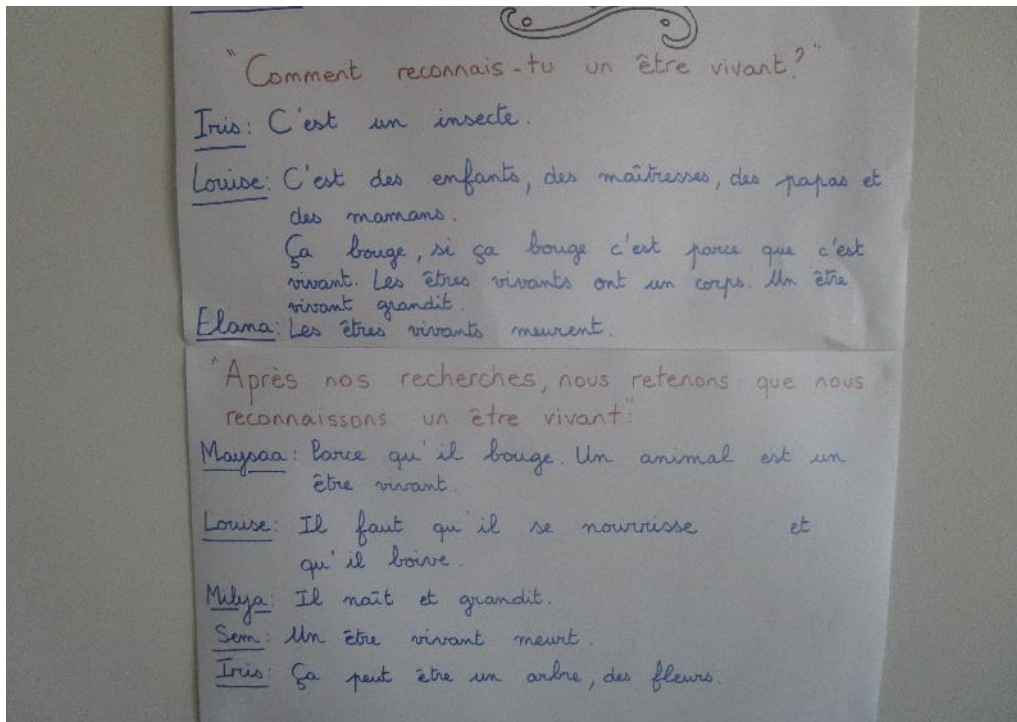 "Comment reconnais-tu un être vivant?"
Iris: C'est un insecte.
Louise: C'est des enfants, des maîtresses, des papas et
des mamans.
Ça bouge, si ça bouge c'est parce que c'est
vivant. Les êtres vivants ont un corps. Un être
vivant grandit.
Elana: Les êtres vivants meurent.
"Après nos recherches, nous retenons que nous
reconnaissons un être vivant":
Maysaa: Parce qu'il bouge. Un animal est un
être vivant.
Louise: Il faut qu'il se nourrisse et
qu'il boive.
Milya: Il naît et grandit.
Sem: Un être vivant meurt.
Iris: Ça peut être un arbre, des fleurs.